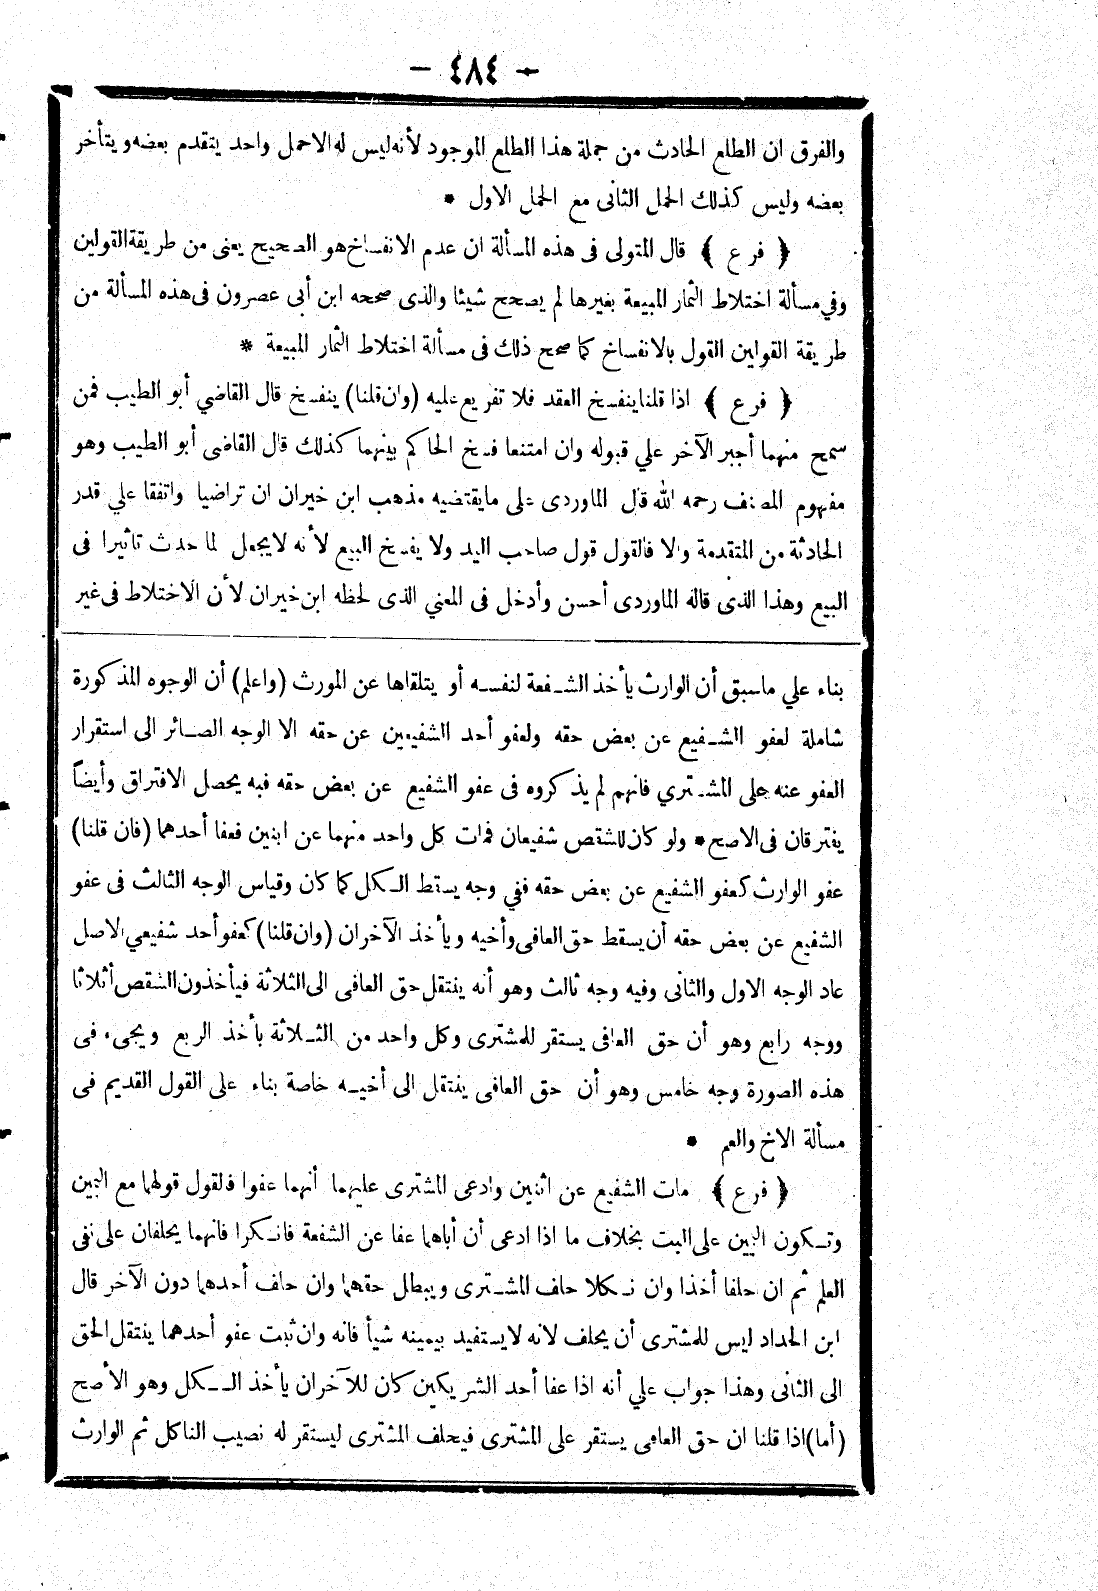 - ٤٨٤ -
والفرق ان الطلع الحادث من جملة هذا الطلع الموجود لأنه ليس له الاحمل واحد يتقدم بعضه ويتأخر
بعضه وليس كذلك الحمل الثانى مع الحمل الاول *
﴿ فرع ﴾ قال المتولى فى هذه المسألة ان عدم الانفساخ هو الصحيح يعنى من طريقة القولين
وفي مسألة اختلاط الثمار المبيعة بغيرها لم يصحح شيئا والذى صححه ابن أبى عصرون فى هذه المسألة من
طريقة القولين القول بالانفساخ كما صحح ذلك فى مسألة اختلاط الثمار المبيعة *
﴿ فرع ﴾ اذا قلنا ينفسخ العقد فلا تفريع عليه (وان قلنا) ينفسخ قال القاضي أبو الطيب فمن
سمح منهما أجبر الآخر علي قبوله وان امتنعا فسخ الحاكم بينهما كذلك قال القاضى أبو الطيب وهو
مفهوم المصنف رحمه الله قال الماوردى على ما يقتضيه مذهب ابن خيران ان تراضيا واتفقا علي قدر
الحادثة من المتقدمة والا فالقول قول صاحب اليد ولا يفسخ البيع لأنه لا يجعل لما حدث تاثيرا فى
البيع وهذا الذى قاله الماوردى أحسن وأدخل فى المعني الذى لحظه ابن خيران لأن الاختلاط فى غير
بناء علي ماسبق أن الوارث يأخذ الشفعة لنفسه أو يتلقاها عن المورث (واعلم) أن الوجوه المذكورة
شاملة لعفو الشفيع عن بعض حقه ولعفو أحد الشفيعين عن حقه الا الوجه الصائر الى استقرار
العفو عنه على المشترى فانهم لم يذكروه فى عفو الشفيع عن بعض حقه فبه يحصل الافتراق وأيضاً
يفترقان فى الاصح * ولو كان للشقص شفيعان فمات كل واحد منهما عن ابنين فعفا أحدهما (فان قلنا)
عفو الوارث كعفو الشفيع عن بعض حقه ففي وجه يسقط الكل كما كان وقياس الوجه الثالث فى عفو
الشفيع عن بعض حقه أن يسقط حق العافى وأخيه ويأخذ الآخران (وان قلنا) كعفو أحد شفيعي الاصل
عاد الوجه الاول والثانى وفيه وجه ثالث وهو أنه ينتقل حق العافى الى الثلاثة فيأخذون الشقص أثلاثا
ووجه رابع وهو أن حق العافى يستقر للمشترى وكل واحد من الثلاثة يأخذ الربع ويجىء فى
هذه الصورة وجه خامس وهو أن حق العافى ينتقل الى أخيه خاصة بناء على القول القديم فى
مسألة الاخ والعم *
﴿ فرع ﴾ مات الشفيع عن اثنين وادعى المشترى عليهما أنهما عفوا فالقول قولهما مع اليمين
وتكون اليمين على البت بخلاف ما اذا ادعى أن أباهما عفا عن الشفعة فانكرا فانهما يحلفان على نفى
العلم ثم ان حلفا أخذا وان نكلا حلف المشترى ويبطل حقهما وان حلف أحدهما دون الآخر قال
ابن الحداد ليس للمشترى أن يحلف لانه لا يستفيد بيمينه شيأ فانه وان ثبت عفو أحدهما ينتقل الحق
الى الثانى وهذا جواب علي أنه اذا عفا أحد الشريكين كان للآخران يأخذ الكل وهو الأصح
(أما) اذا قلنا ان حق العافى يستقر على المشترى فيحلف المشترى ليستقر له نصيب الناكل ثم الوارث